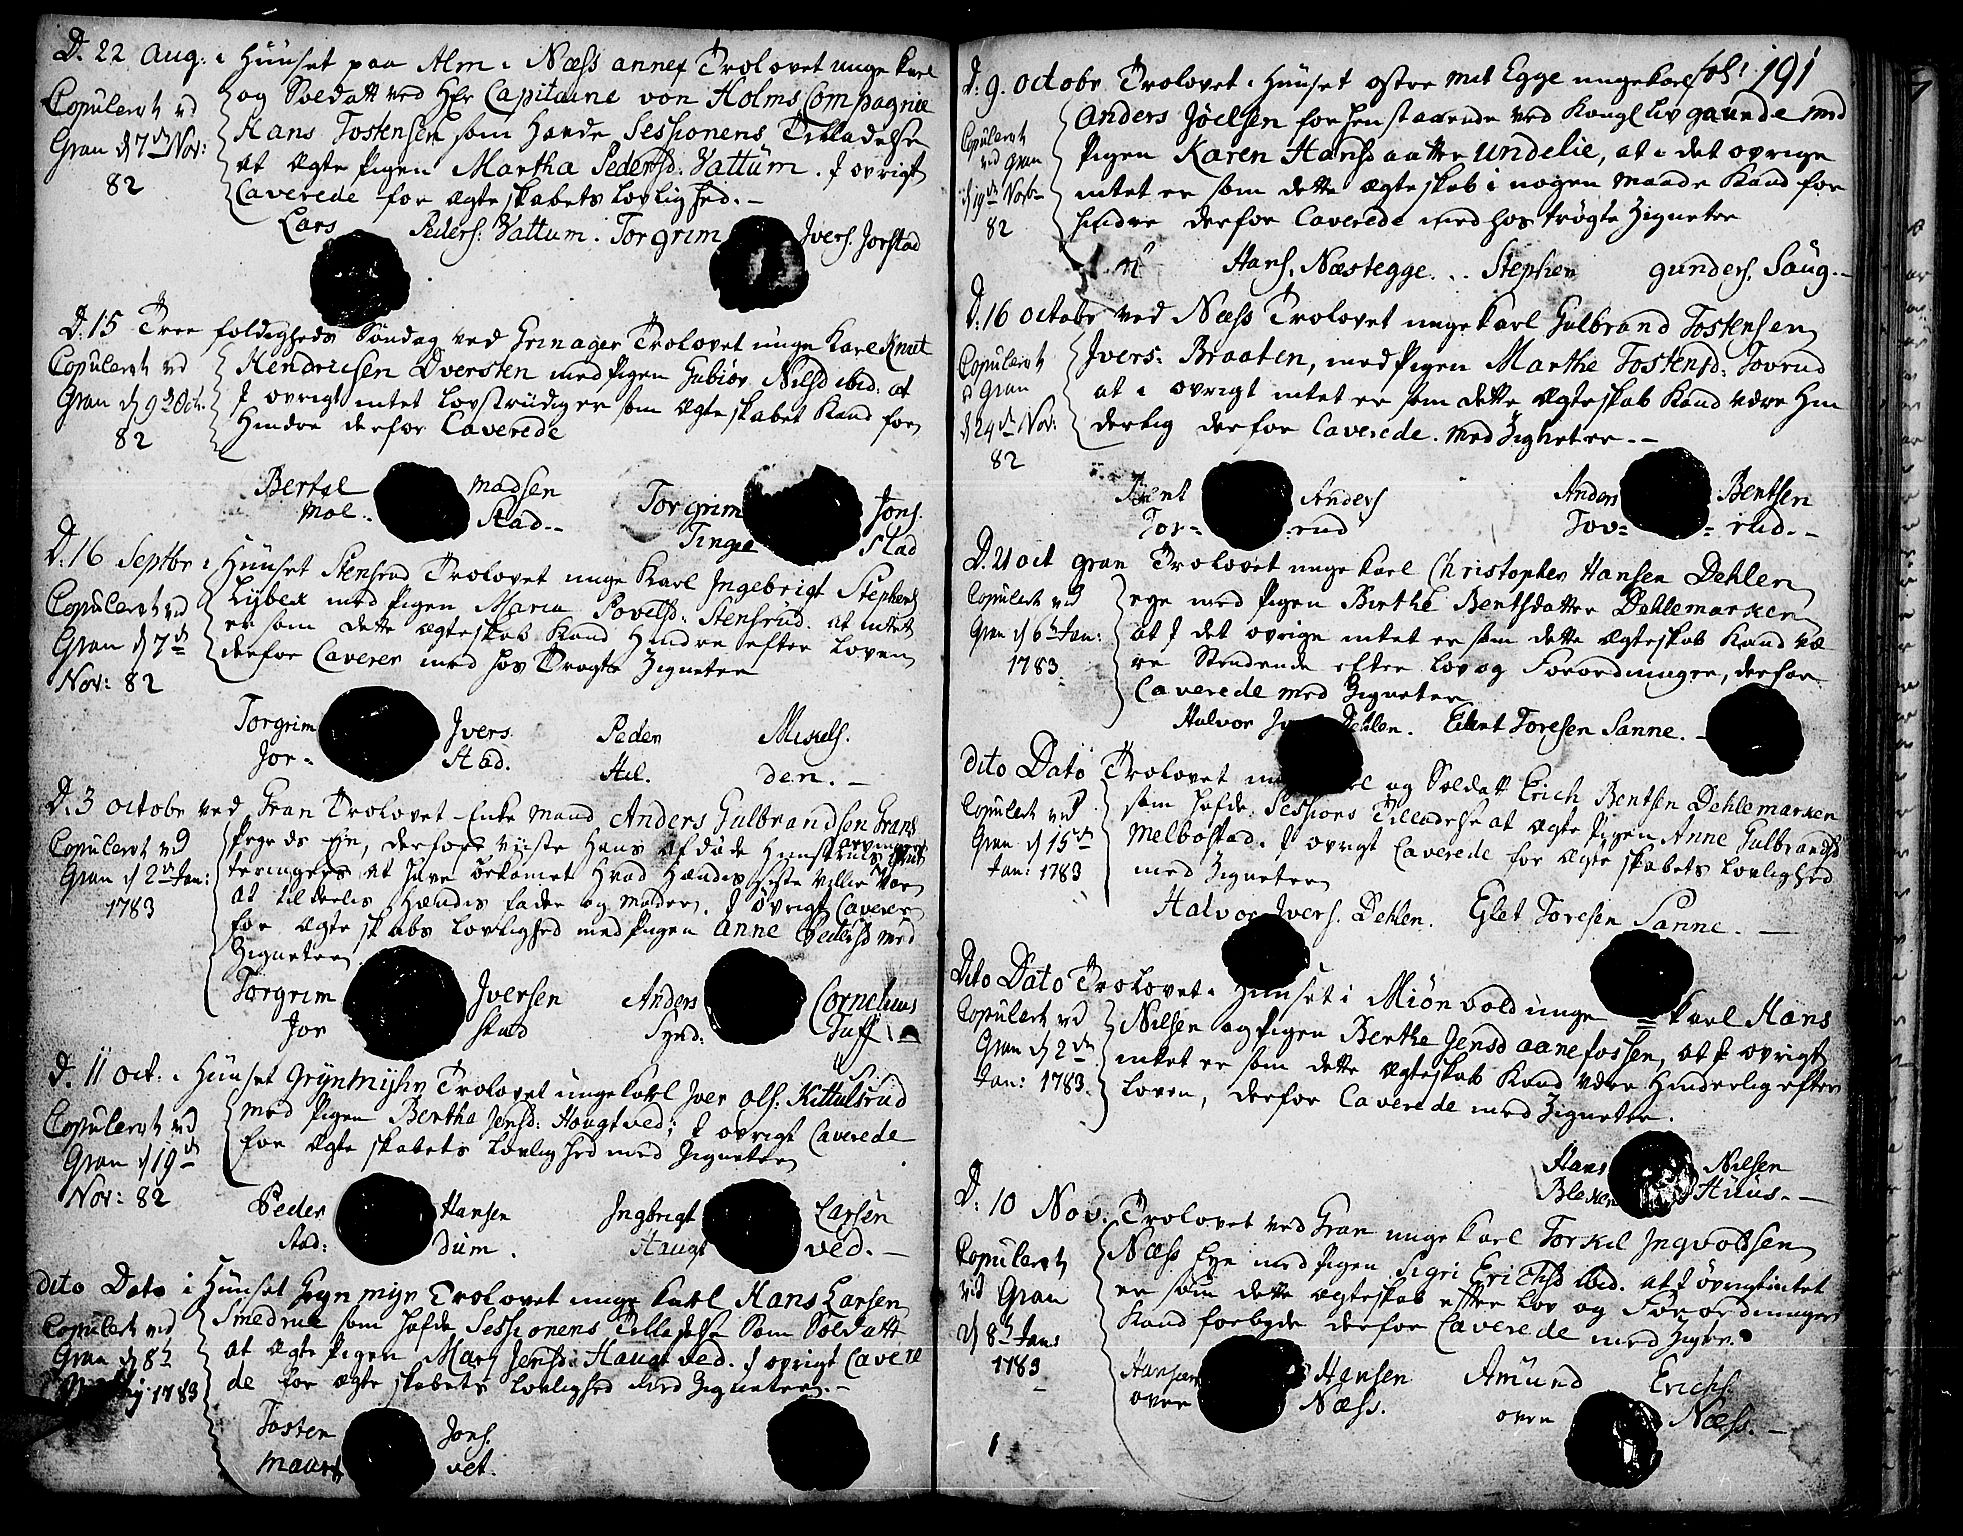 D. 22 Aug: i Huuset paa Alm i Næss annex Trolovet unge karl
og Soldatt ved Hr Capitaine von Holms Compagnie
Hans Tostensen som Havde Sessionens Tilladelse
at ægte Pigen Martha Pedersd: Vattum. J øvrigt
Caverede for ægteskabets Lovlighed.-
Copuleret ved
Gran d 7de Nov:
82
Lars Peders: Vattum. Torgrim Jvers. Jorstad
D. 15 Tree foldigheds Søndag ved Grinager Trolovet unge Karl Knut
Hendricsen Dversten med Pigen Gubiør Nilsd ibid: at
J øvrigt intet Lovstrüdig er som ægteskabet kand for
Hindre derfor Caverede
Copuleret ved
Gran d 9de Octr.
82
Bertel Madsen Torgrim Jons.
Mol.. Stad.. Tingel Stad
D. 16 Septbr i Huuset Stensrud Trolovet unge Karl Jngebrigt Stephens
Lybek med Pigen Maria Povelsd: Stensrud. at intet
er som dette ægteskab kand Hindre efter Loven
derfor Caverer med hos Trøgte Zigneter
Copuleret ved
Gran d 7de
Nov: 82
Torgrim Jvers. Peder Mikels.
Jor- Stad. Stil. den.-
D. 3 octobr ved Gran Trolovet Enke mand Anders Gulbrandsen Grans
Prægeds Eje, derfore viiste Hans afdøde Hunstrues
at have bekomet hvad Hændes sidste villie var
at tildeelis Hændis fader og moder. J øvrigt Caverer
for ægteskabs Lovlighed med Pigen Anne Pedersd med
Zigneter
Copuleret ved
Gran d 2de Jan:
1783
Torgrim Jversen Anders Cornelius
Jor stad Synd: Tuff
D. 11 oct: i Huuset Grynmyhr Trolovet unge karl Jver ols. Kittulsrud
med Pigen Bertha Jensd: Hougtved; J øvrigt Caverede
for ægteskabets Lovlighed med Zigneter
Copuleret ved
Gran d 19de
Nov: 82
Peder Hansen Jngbrigt Larsen
Stad: dum. Haugt ved.-
dito Dato i Huuset Gryn myr Trolovet unge karl Hans Larsen
Smedrue som hafde Sessionens Tilladelse Som Soldatt
at ægte Pigen Mari Jensd: Haugtved. J øvrigt Cavere
de for ægteskabets Lovlighed med Zigneter.-
Copuleret ved
Gran d 8de
1783
Tosten Jons.
Maurt vet.
fol: 191
D. 9. octobr Trolovet i Huuset østre Mit Egge unge karl
Anders Jöelsen forhen staaende ved Kongl Livgaarde med
Pigen Karen Hansdaatter Undelie, at i det øvrige
intet er som dette ægteskab i nogen Maade kand for
hindre derfor Caverede med hos trøgte Zigneter
Copuleret
ved Gran
d 19de Novbr
82
Hans. Næstegge... Stephen gunders. Saug.-
D. 16 octobr ved Næss Trolovet unge karl Gulbrand Tostensen
Jvers: Braaten, med Pigen Marthe Tostensd: Tovrud
at i øvrigt intet er som dette ægteskab kand være Hin
derlig derfor Caverede. med Zigneter.-
Copuleret
d Gran
d 24de Nov:
82
Anders Anders Bentsen
Tov- rud Tov= = rud.-
D. 21 oct gran Trolovet unge karl Christopher Hansen Dehlen
eye med Pigen Berthe Bentsdatter Dehlemarken
at J det øvrige intet er som dette ægteskab kand væ
re Stridende efter Lov og Forordninger, derfor
Caverede med Zigneter
Copuleret ved
Gran d 6te Jan:
1783.
Halvor Jvers Dehlen. Ellert Toresen Sanne.-
dito Dato Trolovet unge karl og Soldatt Erich Bentsen Dehlemarken
som hafde Sessions Tilladelse at ægte Pigen Anne Gulbrandsd
Melbostad. J øvrigt Caverede for ægte skabets Lovlighed
med Zigneter
Copuleret ved
Gran d 15de
Jan: 1783
Halvor Jvers. Dehlen. Elet Toresen Sanne.-
Dito Dato Trolovet i Huuset i Miönvold unge karl Hans
Nilsen og Pigen Berthe Jensd aanefossen, at J øvrigt
intet er som dette ægteskab kand være Hinderlig efter
Loven, derfor Caverede med Zigneter.
Copuleret ved
Gran d 2den
Jan: 1783.
Hans Nilsen
Bleken Huus.-
D: 10 Nov. Trolovet ved Gran unge karl Torkel Jngvoldsen
Næss Eye med Pigen Sigri Erichsd ibid. at J øvrigt intet
er som dette ægteskab efter Lov og Forordninger
kand forbyde derfor Caverede med Zigtr.
Copuleret
ved Gran
d 8de Jan:
1783
Hansen Amund Erichs.
over Næss. oven Næss.-